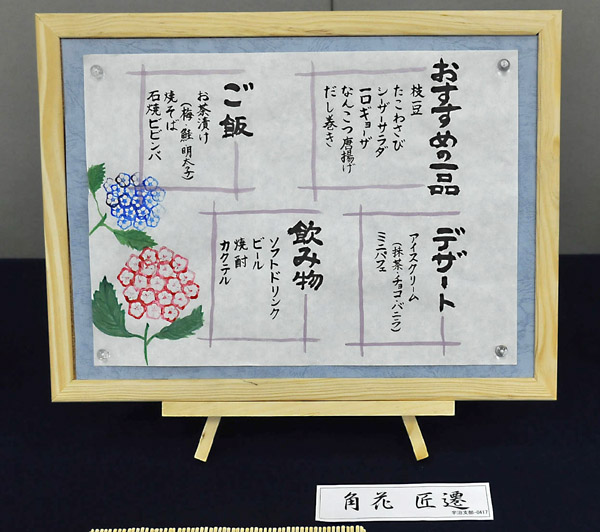 おすすめの一品
枝豆
たこわさび
シーザーサラダ
一口ギョーザ
なんこつ唐揚げ
だし巻き
ご飯
お茶漬け
(梅・鮭・明太子)
焼そば
石焼ビビンバ
デザート
アイスクリーム
(抹茶・チョコ・バニラ)
ミニパフェ
飲み物
ソフトドリンク
ビール
焼酎
カクテル
角花 匠遷